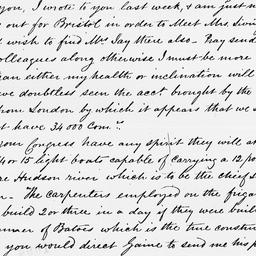 you, I wrote to you last week, & am just n
out for Bristol in order to Meet Mrs. Livi
wish to find Mr. Jay there also - Pray send
olleagues along otherwise I must be more
an either my health or inclination will
ve doubtless seen the acct. brought by the
rom London by which it appears that we s
t have 34 000 Com.
your Congress have any spirit they will
4 or 15 light boats capable of carrying a 12 po
re Hudson river which is to be the chief s
- The carpenters employed on the frigat
build 2 or three in a day if they were buil
anner of Batoes which is the true constru
you would direct Gaine to send me his p